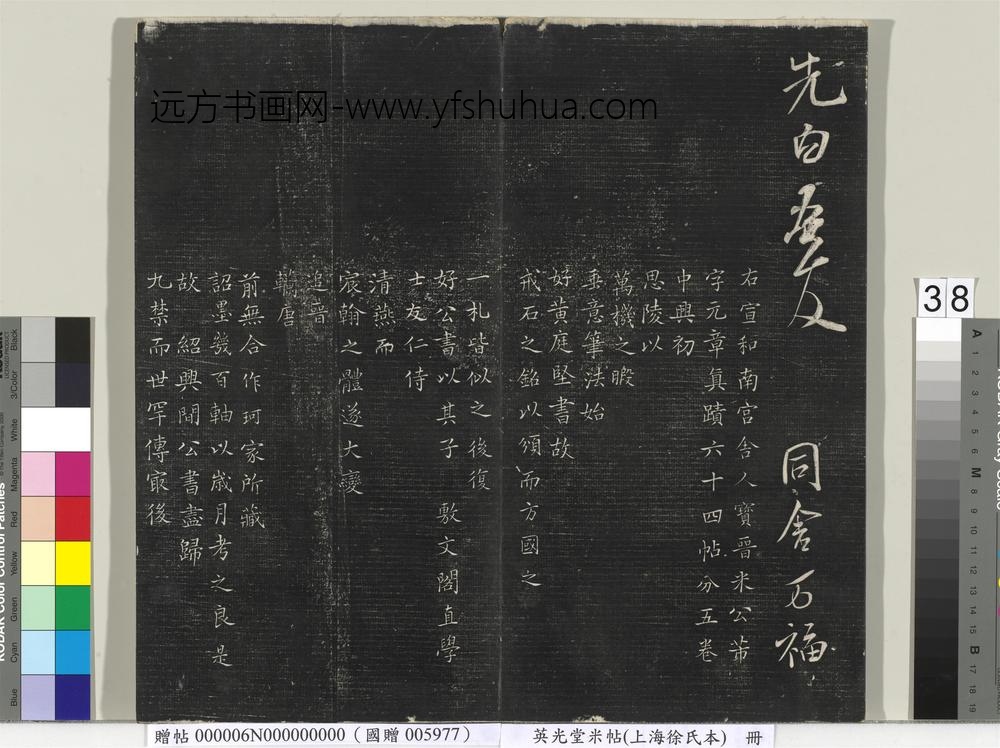 先白
同舍万福
右宣和南宮舍人寶晉米公芾
字元章真蹟六十四帖分五卷
中興初
思陵以
萬機之暇
垂意筆法始
好黃庭堅書故
戒石之銘以頒而方國之
一札皆似之後復
好公書以其子敷文閣直學
士友仁侍
清燕而
宸翰之體遂大變
追晉
轢唐
前無合作珂家所藏
詔墨幾百軸以歲月考之良是
故紹興間公書盡歸
九禁而世罕傳寂後
远方书画网-www.yfshuhua.com
38
贈帖 000006N000000000（國贈 005977）
英光堂米帖(上海徐氏本) 冊
Black
3/Color
White
Magenta
Red
Yellow
Green
Cyan
Blue
KODAK Color Control Patches
A 1 2 3 4 5 6 M 8 9 10 11 12 13 14 15 B 17 18 19